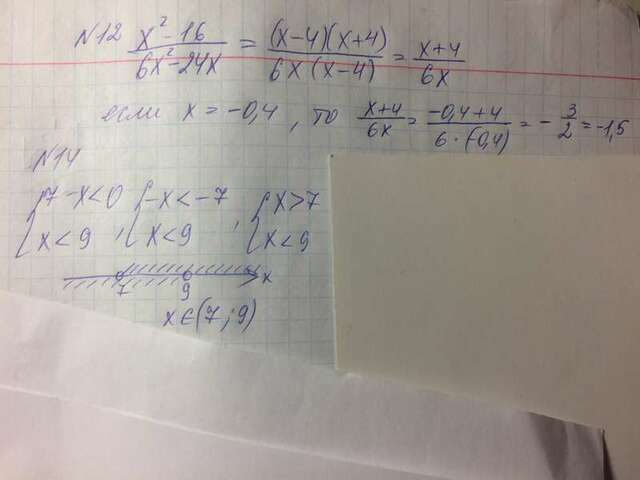 N12 x²-16/6x²-24x = (x-4)(x+4)/6x(x-4) = x+4/6x
если x = -0,4, то x+4/6x = -0,4+4/6·(-0,4) = -3/2 = -1,5
N14
{7-x<0 {-x<-7 {x>7
{x<9 , {x<9 , {x<9
7 9 x
x∈(7;9)